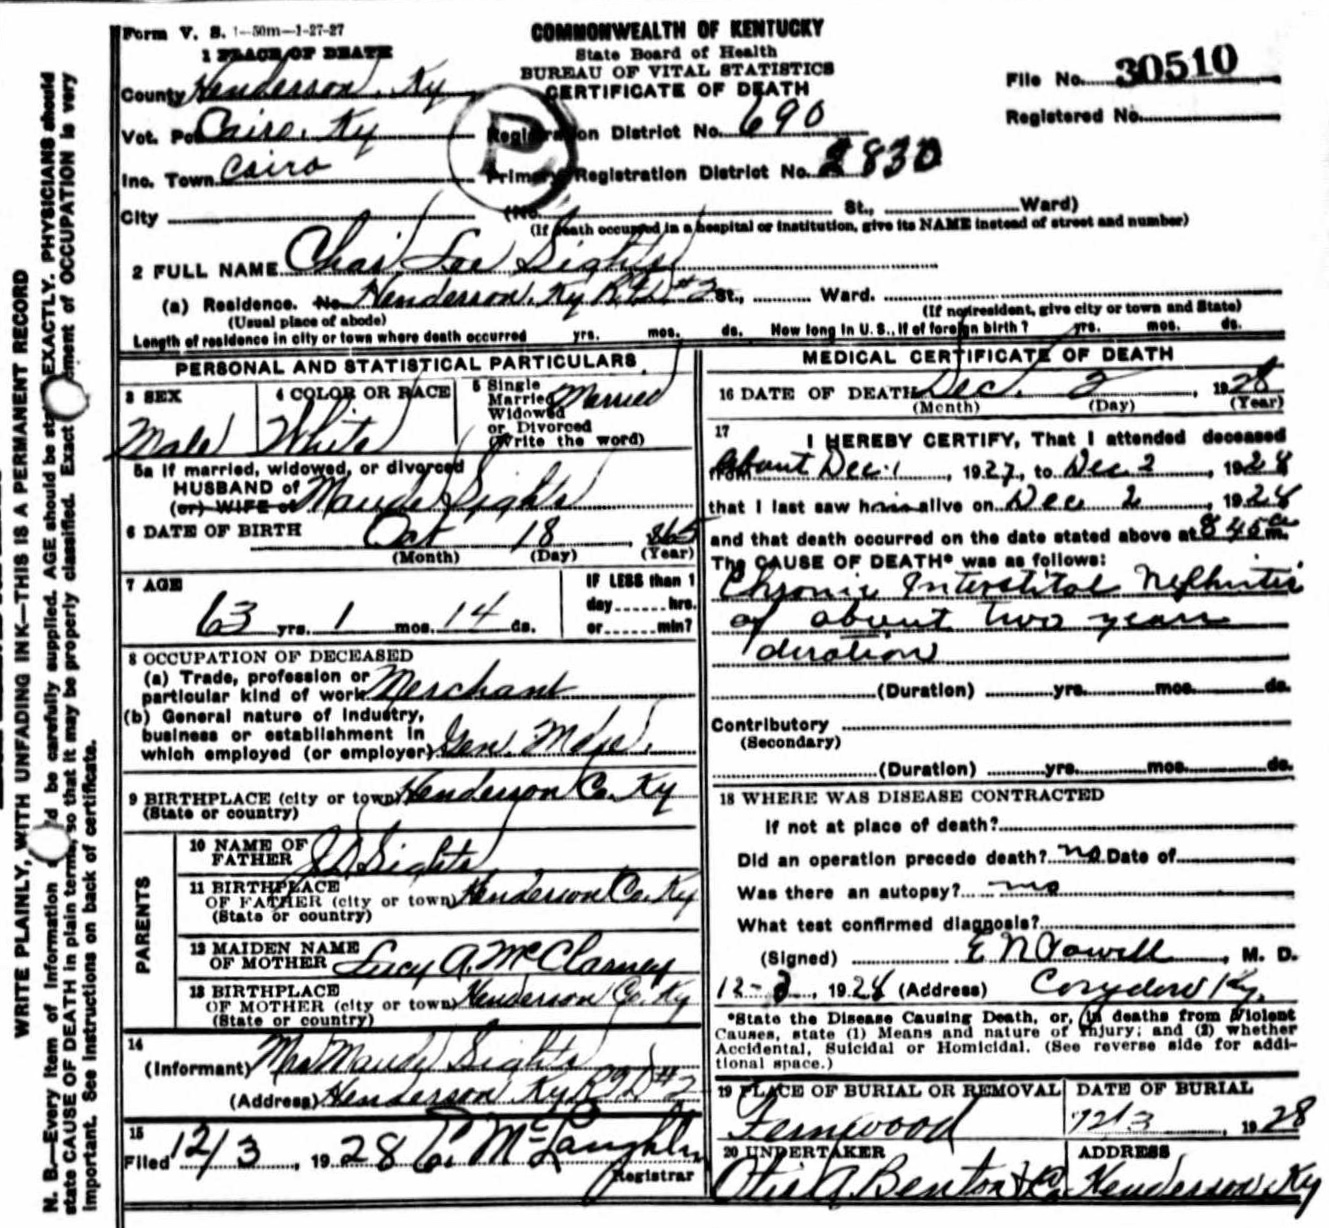 Form V. S. 1-50m-1-27-27
COMMONWEALTH OF KENTUCKY
State Board of Health
BUREAU OF VITAL STATISTICS
CERTIFICATE OF DEATH
File No. 30510
Registered No.
1 PLACE OF DEATH
County Henderson, Ky
Vot. Pct. Cairo, Ky
Inc. Town Cairo
City
Registration District No. 690
Primary Registration District No. 2830
(No. St., Ward)
(If death occurred in a hospital or institution, give its NAME instead of street and number)
2 FULL NAME Chas Lee Sights
(a) Residence. No. Henderson, Ky RFD #2 St., Ward.
(Usual place of abode) (If nonresident, give city or town and State)
Length of residence in city or town where death occurred yrs. mos. ds. How long in U. S., if of foreign birth? yrs. mos. ds.
PERSONAL AND STATISTICAL PARTICULARS
3 SEX Male
4 COLOR OR RACE White
5 Single
Married
Widowed
or Divorced
(Write the word) Married
5a If married, widowed, or divorced
HUSBAND of
(or) WIFE of Maude Sights
6 DATE OF BIRTH Oct 18, 1865
(Month) (Day) (Year)
7 AGE
63 yrs. 1 mos. 14 ds.
IF LESS than 1
day hrs.
or min?
8 OCCUPATION OF DECEASED
(a) Trade, profession or
particular kind of work Merchant
(b) General nature of industry,
business or establishment in
which employed (or employer) Gen. Mdse.
9 BIRTHPLACE (city or town) Henderson Co. Ky
(State or country)
PARENTS
10 NAME OF
FATHER Sights
11 BIRTHPLACE
OF FATHER (city or town) Henderson Co. Ky
(State or country)
12 MAIDEN NAME
OF MOTHER Lucy A. McClarney
13 BIRTHPLACE
OF MOTHER (city or town) Henderson Co. Ky
(State or country)
14
(Informant) Mrs Maude Sights
(Address) Henderson Ky RFD #2
15
Filed 12/3, 1928 E. McLaughlin
Registrar
MEDICAL CERTIFICATE OF DEATH
16 DATE OF DEATH Dec. 2 1928
(Month) (Day) (Year)
17
I HEREBY CERTIFY, That I attended deceased
from about Dec. 1, 1927, to Dec 2, 1928
that I last saw him alive on Dec 2, 1928
and that death occurred on the date stated above at 8 45 a m.
The CAUSE OF DEATH* was as follows:
Chronic Interstital Nephritis
of about two years
duration
(Duration) yrs. mos. ds.
Contributory
(Secondary)
(Duration) yrs. mos. ds.
18 WHERE WAS DISEASE CONTRACTED
If not at place of death?
Did an operation precede death? no Date of
Was there an autopsy? no
What test confirmed diagnosis?
(Signed) E N Powell, M. D.
12-3, 1928 (Address) Corydon Ky.
*State the Disease Causing Death, or, in deaths from Violent
Causes, state (1) Means and nature of Injury; and (2) whether
Accidental, Suicidal or Homicidal. (See reverse side for addi-
tional space.)
19 PLACE OF BURIAL OR REMOVAL Fernwood
DATE OF BURIAL 12/3 1928
20 UNDERTAKER Otis A. Benton & Co.
ADDRESS Henderson, Ky
WRITE PLAINLY, WITH UNFADING INK—THIS IS A PERMANENT RECORD
N. B.—Every item of information should be carefully supplied. AGE should be stated EXACTLY. PHYSICIANS should
state CAUSE OF DEATH in plain terms, so that it may be properly classified. Exact statement of OCCUPATION is very
important. See instructions on back of certificate.